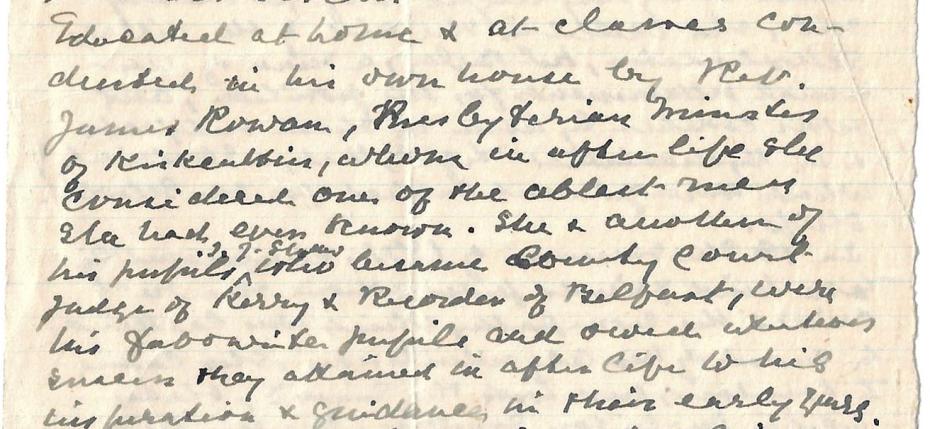 Educated at home & at classes con-
ducted in his own house by Rev.
James Rowan, Presbyterian Minister
of Kirkcubbin, whom in after life she
considered one of the ablest men
she had ever known. She & another of
his pupils, who became County Court
Judge of Kerry & Recorder of Belfast, were
his favourite pupils and owed whatever
success they attained in after life to his
inspiration & guidance in their early years.